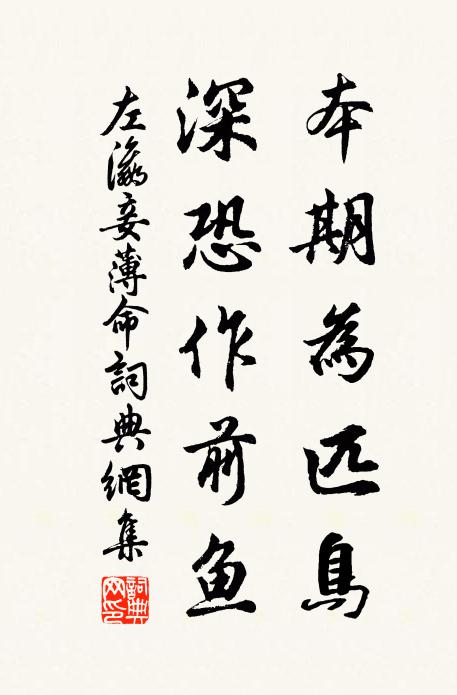 本期為匹鳥
深恐作前魚
左瀛妾薄命詞典網集
詞典网印